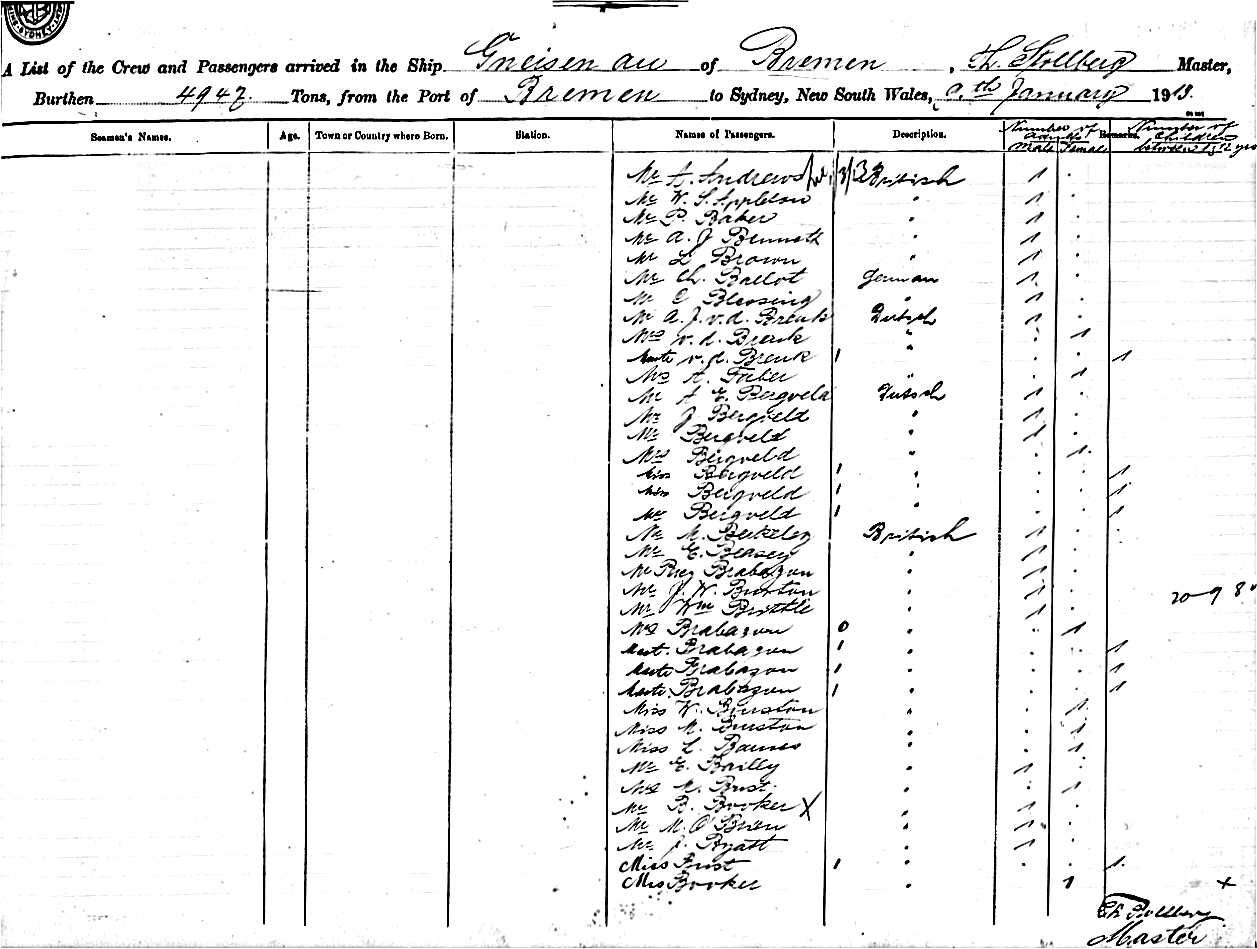 SYDNEY
A List of the Crew and Passengers arrived in the Ship Gneisenau of Bremen, Th. Stollberg Master,
Burthen 4947 Tons, from the Port of Bremen to Sydney, New South Wales, th January 1913.
Seamen's Names. Age. Town or Country where Born. Station. Names of Passengers. Description. Number of adults Male Female Remarks. Number of Children between 1 & 12 yrs
Mr A. Andrews British 1
Mr W. S. Appleton " 1
Mr P. Baker " 1
Mr A. J Bennett " 1
Mr L Brown " 1
Mr Ch. Ballot German 1
Mr C Blessing " 1
Mr A. J. v. d. Breuk Dutsch 1
Mrs v. d. Breuk " 1
Mastr v. d. Breuk 1 " 1
Mrs A. Faber " 1
Mr A E. Bergveld Dutsch 1
Mr J Bergveld " 1
Mr Bergveld " 1
Mrs Bergveld " 1
Miss Bergveld 1 " 1
Miss Bergveld 1 " 1
Mr Bergveld 1 " 1
Mr M. Berkeley British 1
Mr E. Beasey " 1
Mr Brabazon " 1
Mr J. W. Burston " 1
Mr Wm Brittle " 1
20 9 8
Mrs Brabazon 0 " 1
Mast. Brabazon 1 " 1
Mastr Brabazon 1 " 1
Mastr. Brabazon 1 " 1
Miss W. Burston " 1
Miss M. Burston " 1
Miss L. Barnes " 1
Mr E. Bailly " 1
Mrs M. Bust. " 1
Mr B. Booker X " 1
Mr M. O Brien " 1
Mr J. Byatt " 1
Miss Bust 1 " 1.
Miss Booker " 1 x
Th Stollberg
Master